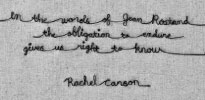 In the words of Jean Rostand
the obligation to endure
gives us right to know
Rachel Carson